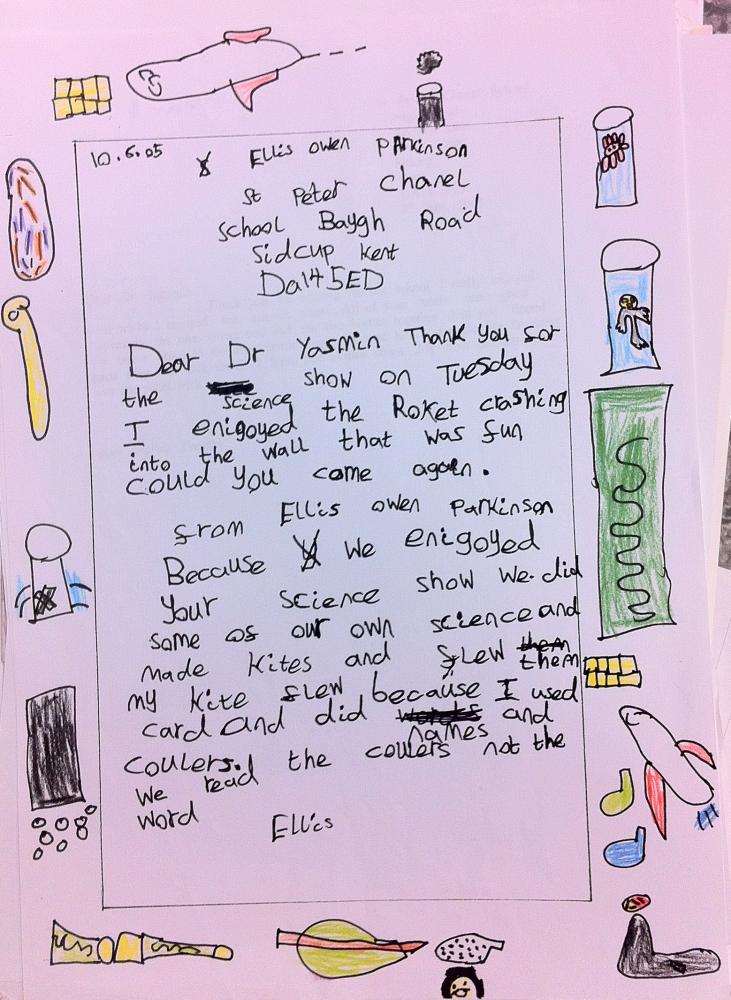 10.6.05 Ellis owen Parkinson
St Peter Chanel
School Baygh Road
Sidcup kent
Da14 5ED
Dear Dr Yasmin Thank You for
the science show on Tuesday
I enigoyed the Roket crashing
into the wall that was fun
could You come again.
from Ellis owen Parkinson
Because we enigoyed
Your science show we did
some os our own science and
made kites and flew them
my kite flew because I used
card and did names and
coulers. the coulers not the
We read
word Ellis